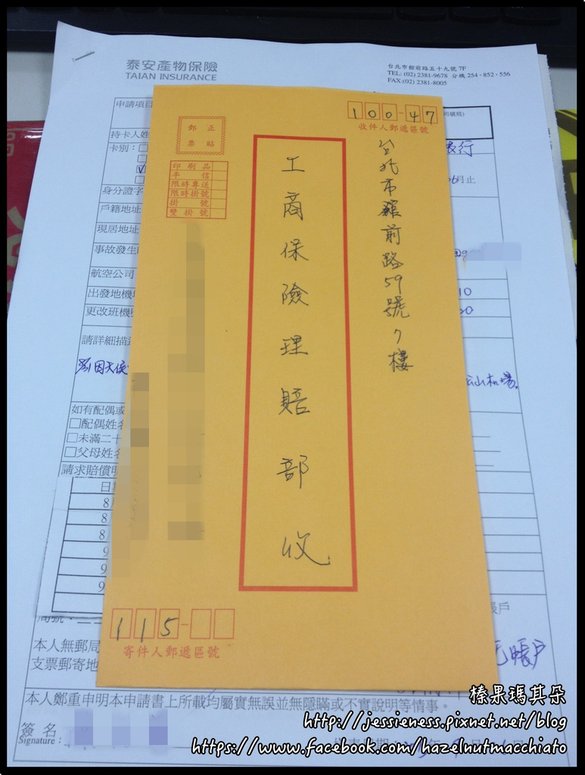 泰安產物保險
TAIAN INSURANCE
台北市館前路五十九號7F
TEL: (02) 2381-9678 分機 254、852、556
FAX:(02) 2381-8005
申請項目
持卡人姓
卡別：
身分證字
戶籍地址
現居地址
事故發生
航空公司
出發地機
更改班機
請詳細描述
如有配偶或
□配偶姓名
□未滿二十
□父母姓名
請求賠償明
日
100-47
收件人郵遞區號
正貼
郵票
印刷品
平信
限時專送
限時掛號
掛號
雙掛號
台北市館前路59號7樓
工商保險理賠部 收
115
寄件人郵遞區號
帳戶
本人無郵局
支票郵寄地
本人鄭重申明本申請書上所載均屬實無誤並無隱瞞或不實說明等情事。
簽名
Signature:
榛果瑪其朵
http://jessieness.pixnet.net/blog
https://www.facebook.com/hazelnutmacchiato